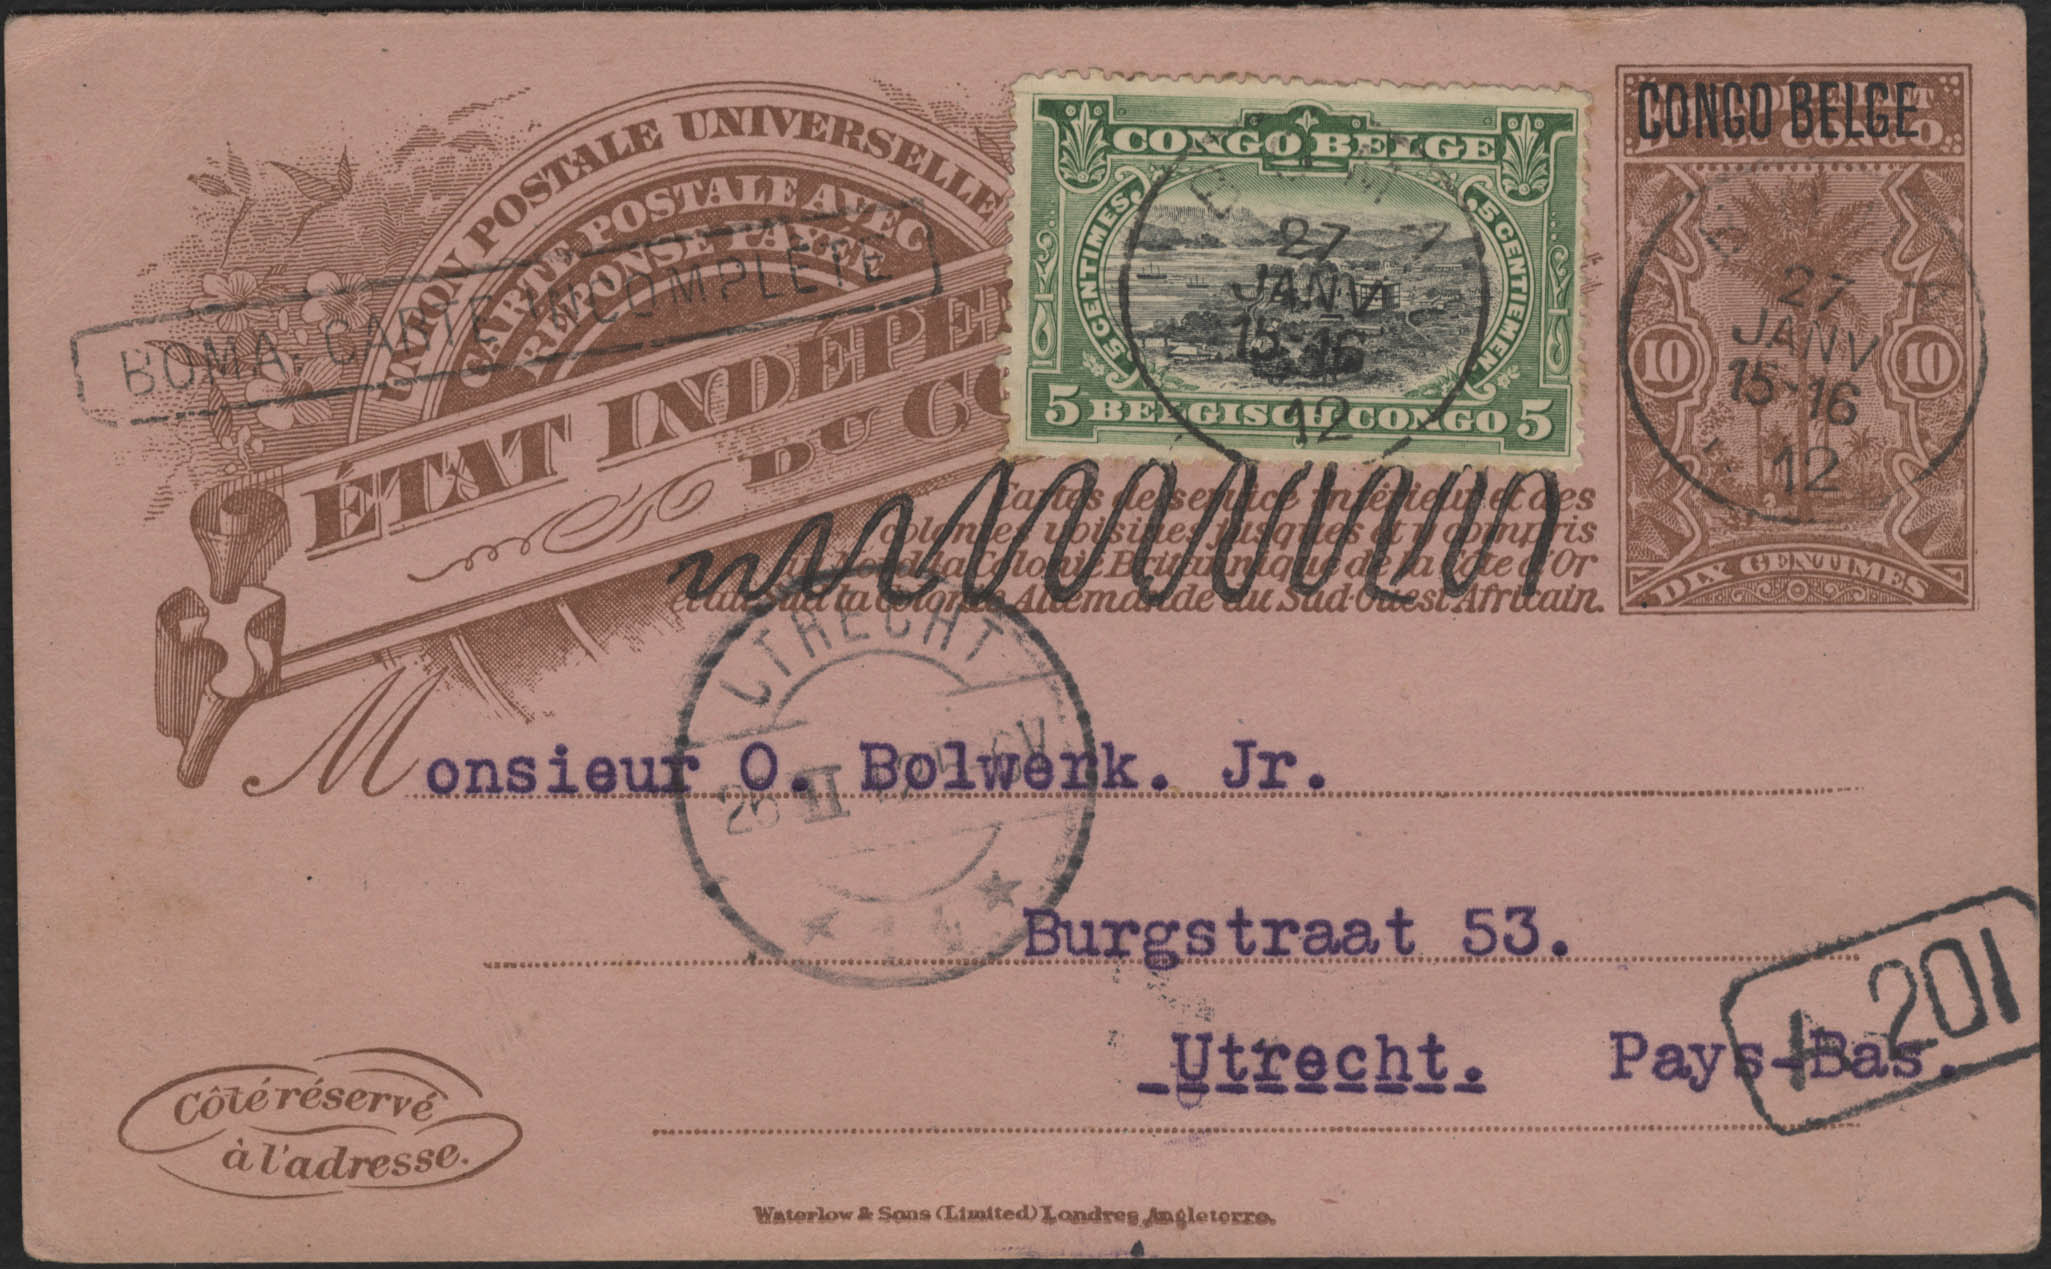 UNION POSTALE UNIVERSELLE
CARTE POSTALE AVEC
RÉPONSE PAYÉE
ÉTAT INDÉPE
DU CO
BOMA. CARTE INCOMPLETE
CONGO BELGE
5 CENTIMES.
5 CENTIEMEN.
5 BELGISCH CONGO 5
27
JANV
15-16
12
CONGO BELGE
DU CONGO
10 10
DIX CENTIMES
27
JANV
15-16
12
Cartes de service intérieur et des
colonies voisines jusques et y compris
au Nord la Colonie Britannique de la Côte d'Or
et au Sud la Colonie Allemande du Sud-Ouest Africain.
UTRECHT
26 II
Monsieur O. Bolwerk. Jr.
Burgstraat 53.
Utrecht. Pays-Bas.
201
Côté réservé
à l'adresse.
Waterlow & Sons (Limited) Londres, Angleterre.